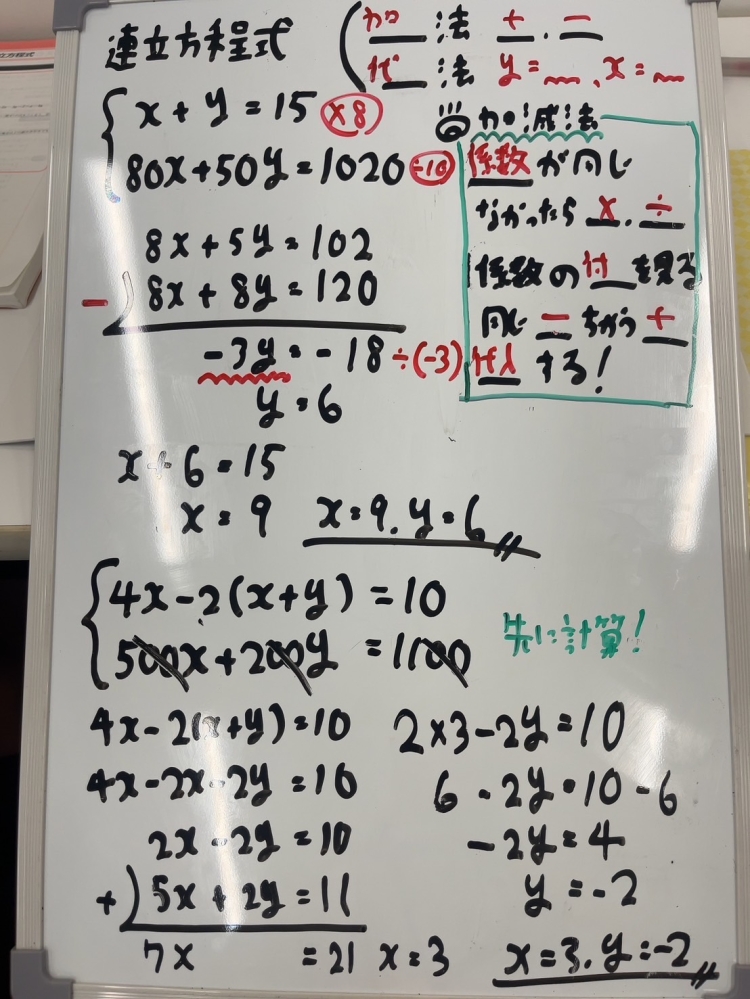 連立方程式
加 法 +.−
代 法 y=〰,x=〰
x+y=15 ×8
80x+50y=1020 ÷10
8x+5y=102
−) 8x+8y=120
-3y=-18 ÷(-3)
y=6
x+6=15
x=9 x=9.y=6
加減法
係数が同じ
なかったら ×.÷
係数の付 を見る
同じ − ちがう +
代入する!
4x-2(x+y)=10
500x+200y=1100
先に計算!
4x-2(x+y)=10
4x-2x-2y=10
2x-2y=10
+) 5x+2y=11
7x =21 x=3
2×3-2y=10
6-2y=10-6
-2y=4
y=-2
x=3.y=-2